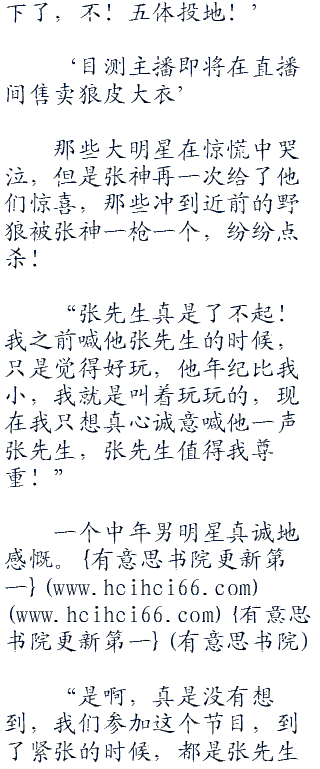 下了，不！五体投地！’
‘目测主播即将在直播
间售卖狼皮大衣’
那些大明星在惊慌中哭
泣，但是张神再一次给了他
们惊喜，那些冲到近前的野
狼被张神一枪一个，纷纷点
杀！
“张先生真是了不起！
我之前喊他张先生的时候，
只是觉得好玩，他年纪比我
小，我就是叫着玩玩的，现
在我只想真心诚意喊他一声
张先生，张先生值得我尊
重！”
一个中年男明星真诚地
感慨。{有意思书院更新第
一}(www.hcihci66.com)
(www.hcihci66.com){有意思
书院更新第一}(有意思书院)
“是啊，真是没有想
到，我们参加这个节目，到
了紧张的时候，都是张先生